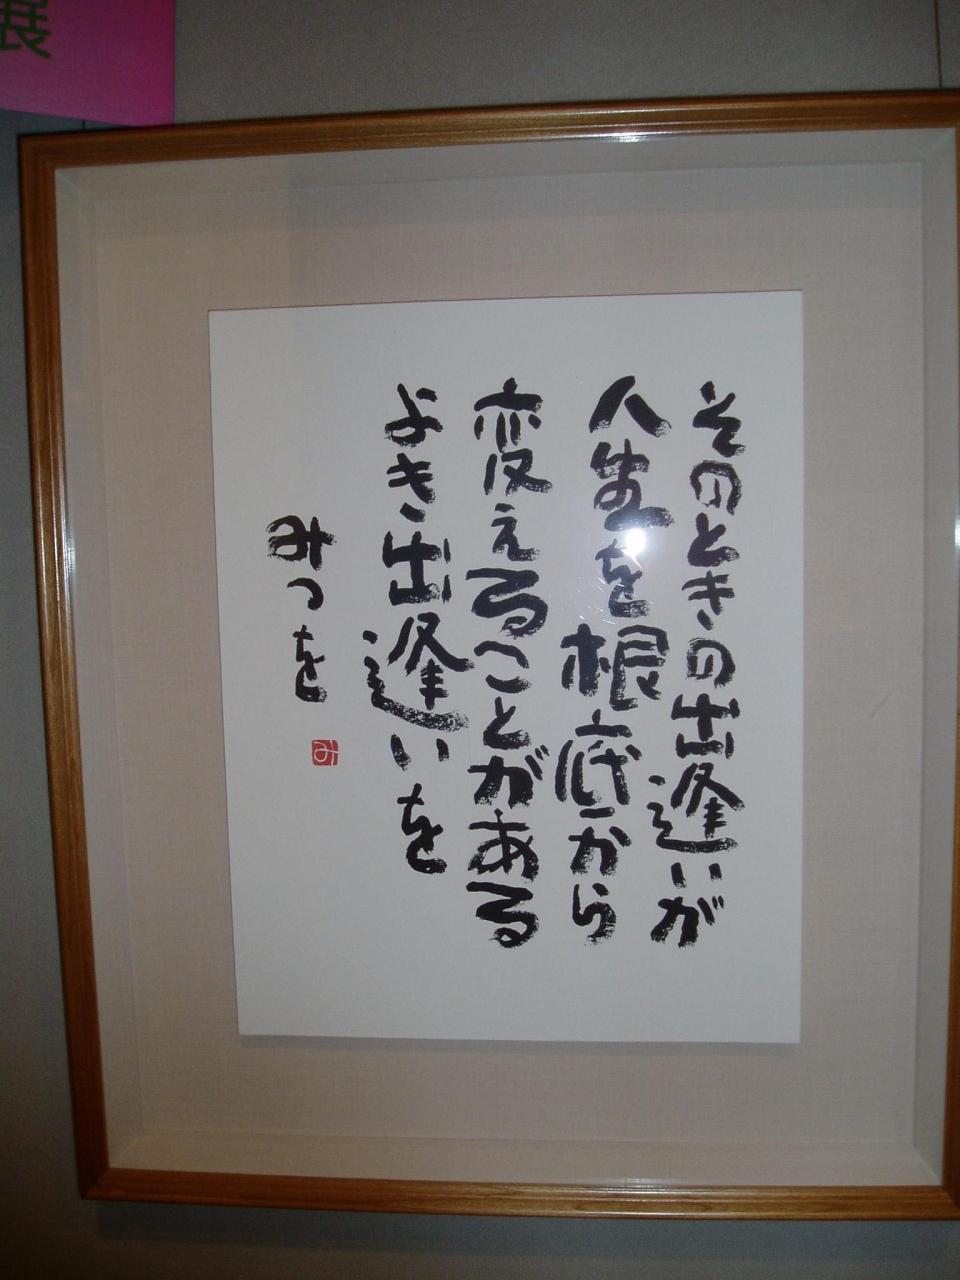 展
そのときの出逢いが
人生を根底から
変えることがある
よき出逢いを
みつを
み